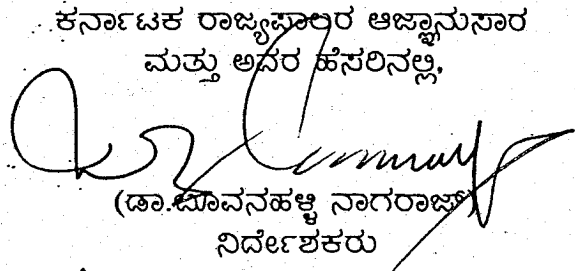 ಕರ್ನಾಟಕ ರಾಜ್ಯಪಾಲರ ಆಜ್ಞಾನುಸಾರ
ಮತ್ತು ಅವರ ಹೆಸರಿನಲ್ಲಿ,
(ಡಾ. ನಾಗರಾಜ್)
ನಿರ್ದೇಶಕರು